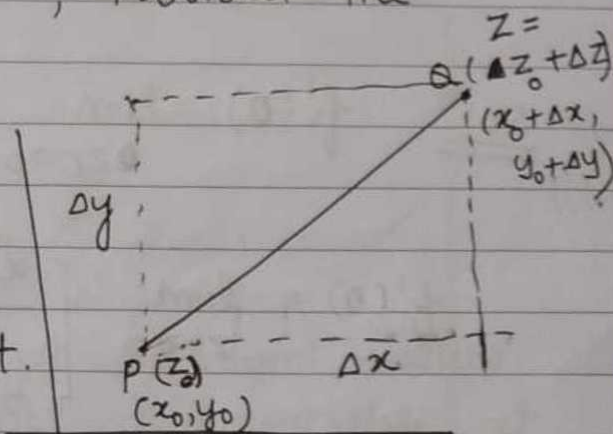 Z =
Q (Z₀ + ΔZ)
(x₀ + Δx,
y₀ + Δy)
Δy
t.
P (Z₀)
Δx
(x₀, y₀)